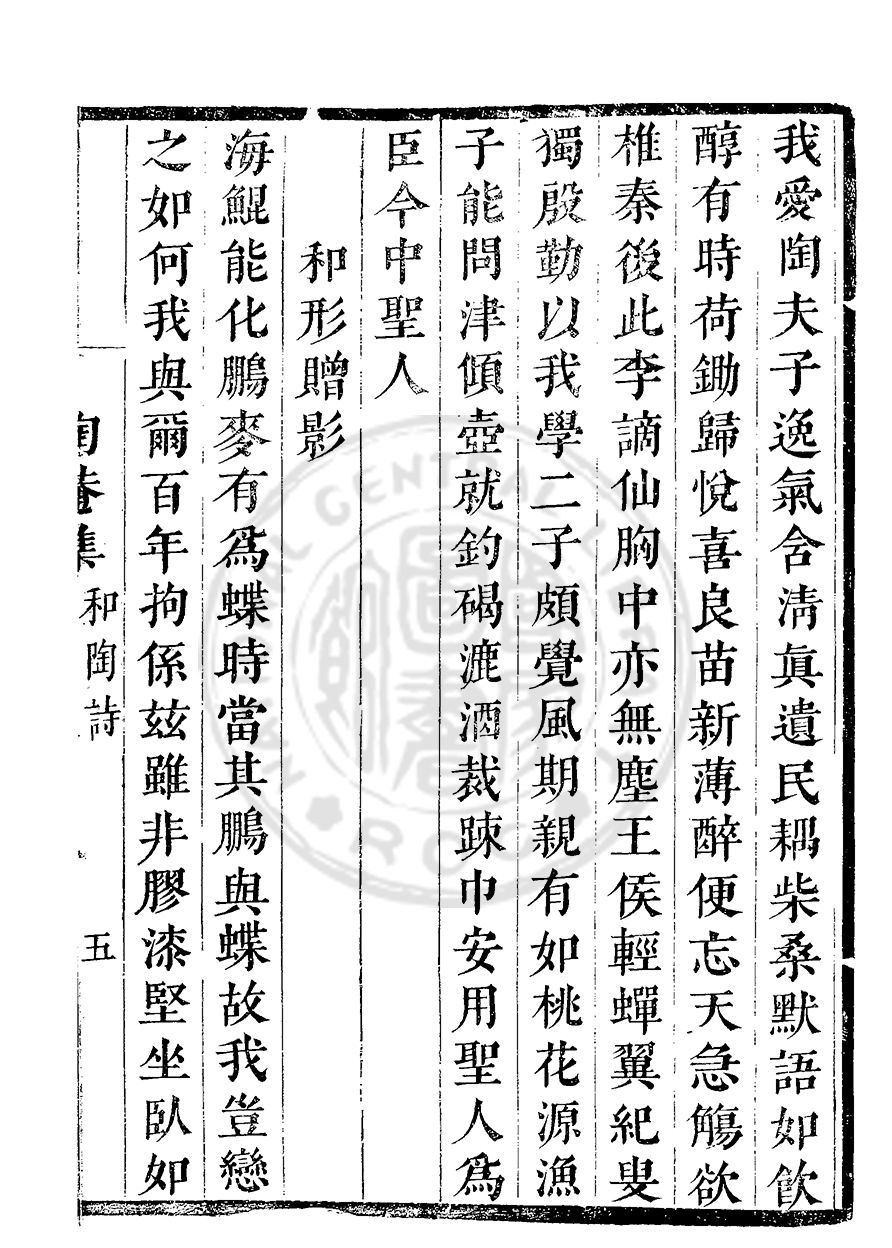 我愛陶夫子逸氣含淸眞遺民耦柴桑默語如飮
醇有時荷鋤歸悅喜良苗新薄醉便忘天急觴欲
椎秦後此李謫仙胸中亦無塵王侯輕蟬翼紀叟
獨殷勤以我學二子頗覺風期親有如桃花源漁
子能問津傾壺就釣碣漉酒裁疎巾安用聖人爲
臣今中聖人
和形贈影
海鯤能化鵬麥有爲蝶時當其鵬與蝶故我豈戀
之如何我與爾百年拘係茲雖非膠漆堅坐臥如
陶菴集 和陶詩 五
NATIONAL CENTRAL LIBRARY R.O.C.